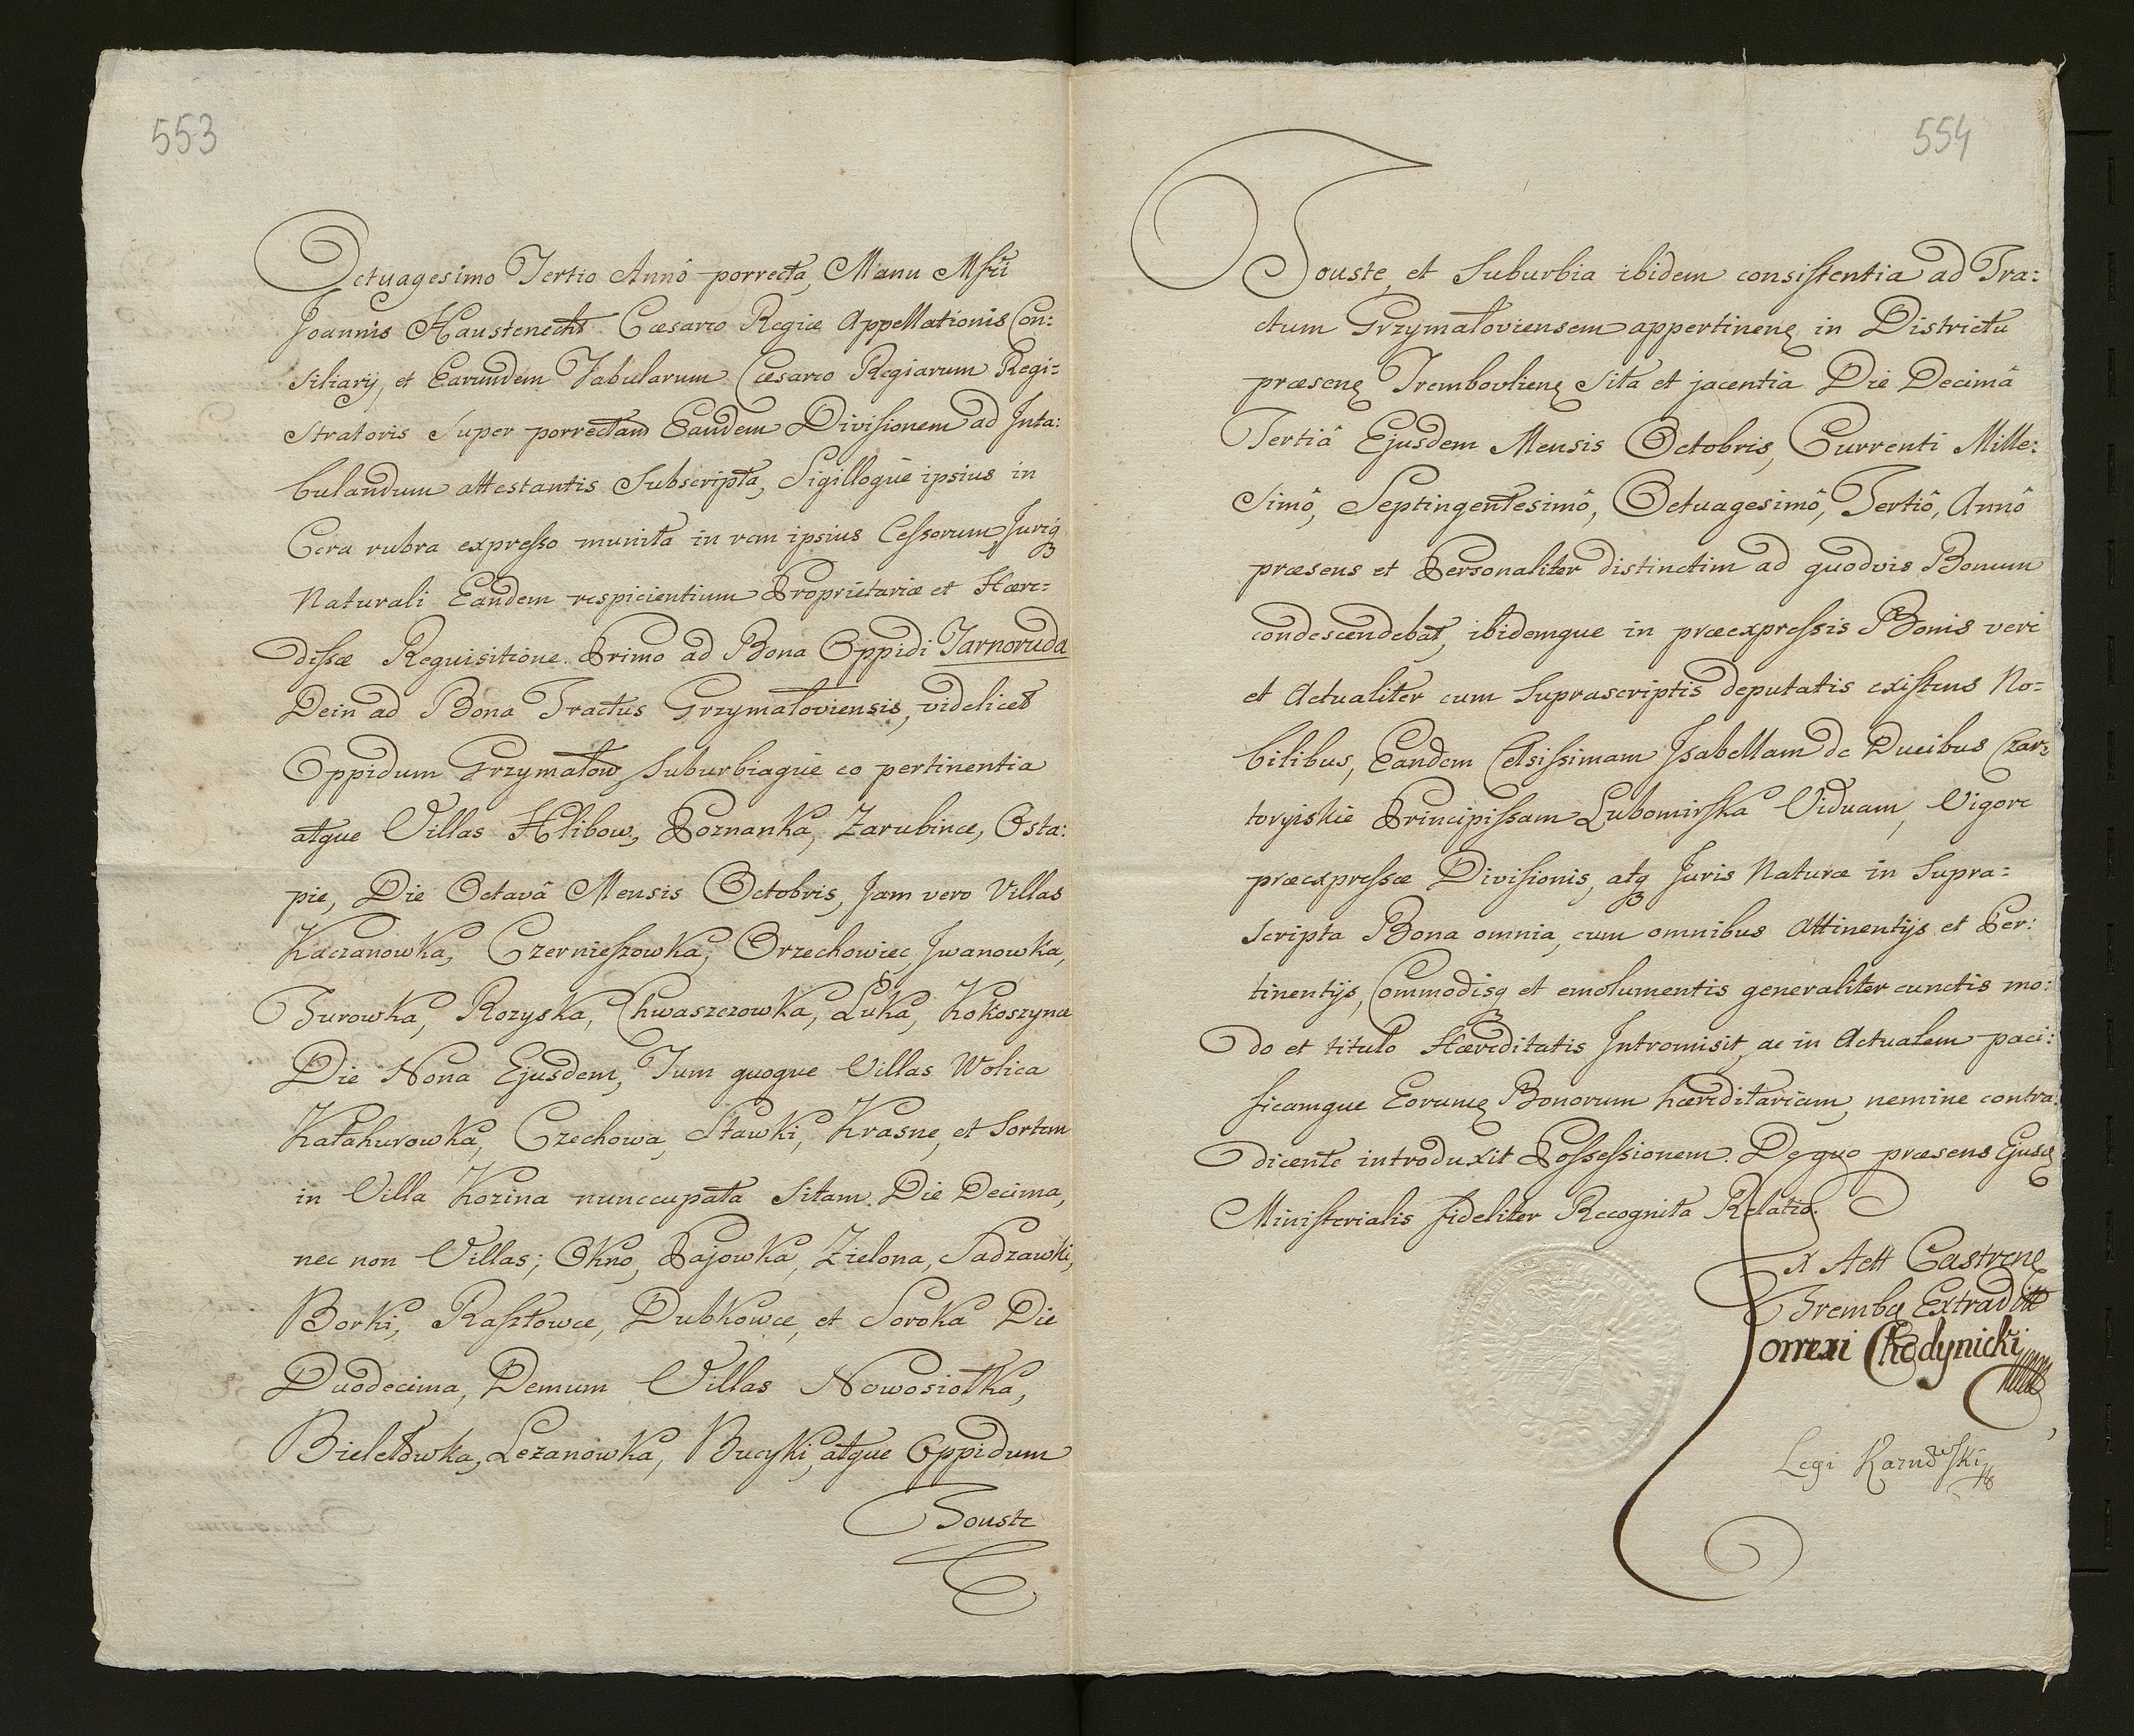 553
Octuagesimo Tertio Annô porrecta, Manu Mfci
Joannis Haustenecht Cæsareo Regiæ Appellationis Con:
siliarij, et Earundem Tabularum Cæsareo Regiarum Regi=
stratoris super porrectam Eandem Divisionem ad Inta:
bulandum attestantis Subscripta, Sigilloque ipsius in
Cera rubra expresso munita in rem ipsius Cessorum Juriq
Naturali Eandem respicientium Proprietariæ et Hære=
dissæ Requisitione. Primo ad Bona Oppidi Tarnoruda
Dein ad Bona Tractus Grzymałoviensis, videlicet
Oppidum Grzymałow, Suburbiaque eo pertinentia
atque Villas Hlibow, Poznanka, Zarubince, Osta:
pie, Die Octavâ Mensis Octobris, Jam vero Villas
Kaczanowka, Czernieszowka, Orzechowiec, Iwanowka,
Turowka, Rozyska, Chwaszczowka, Łuka, Kokoszynce
Die Nona Ejusdem, Tum quoque Villas Wolica
Kałahurowka, Czechowa, Stawki, Krasne, et Sortem
in Villa Kozina nunccupata Sitam. Die Decima,
nec non Villas; Okno, Pajowka, Zielona, Sadzawki,
Borki, Rasztowce, Dubkowce, et Soroka Die
Duodecima, Demum Villas Nowosiołka,
Bieletowka, Lezanowka, Bucyki, atque Oppidum
Touste
554
Touste, et Suburbia ibidem consistentia ad Tra:
ctum Grzymałoviensem appertinen in Districtu
præsen Trembovlien Sita et jacentia Die Decimâ
Tertiâ Ejusdem Mensis Octobris, Currenti Mille:
simô, Septingentesimô, Octuagesimô, Tertiô, Annô
præsens et Personaliter distinctim ad quodvis Bonum
condescendebat, ibidemque in præexpressis Bonis vere
et Actualiter cum Suprascriptis deputatis existens No=
bilibus, Eandem Celsissimam Isabellam de Ducibus Czar=
toryiskie Principissam Lubomirska Viduam, Vigore
præexpressæ Divisionis, atq Juris Naturæ in Supra=
scripta Bona omnia, cum omnibus Attinentijs et Per:
tinentijs, Commodisq et emolumentis generaliter cunctis mo:
do et titulo Hæreditatis Intromisit, ac in Actualem paci:
ficamque Eorum Bonorum hæreditariam, nemine contra:
dicente introduxit Possessionem. De quo præsens Ejusd
Ministerialis fideliter Recognita Relatio.
Ex Actt Castren
Tremb Extradit
Correxi Chodynicki
Legi